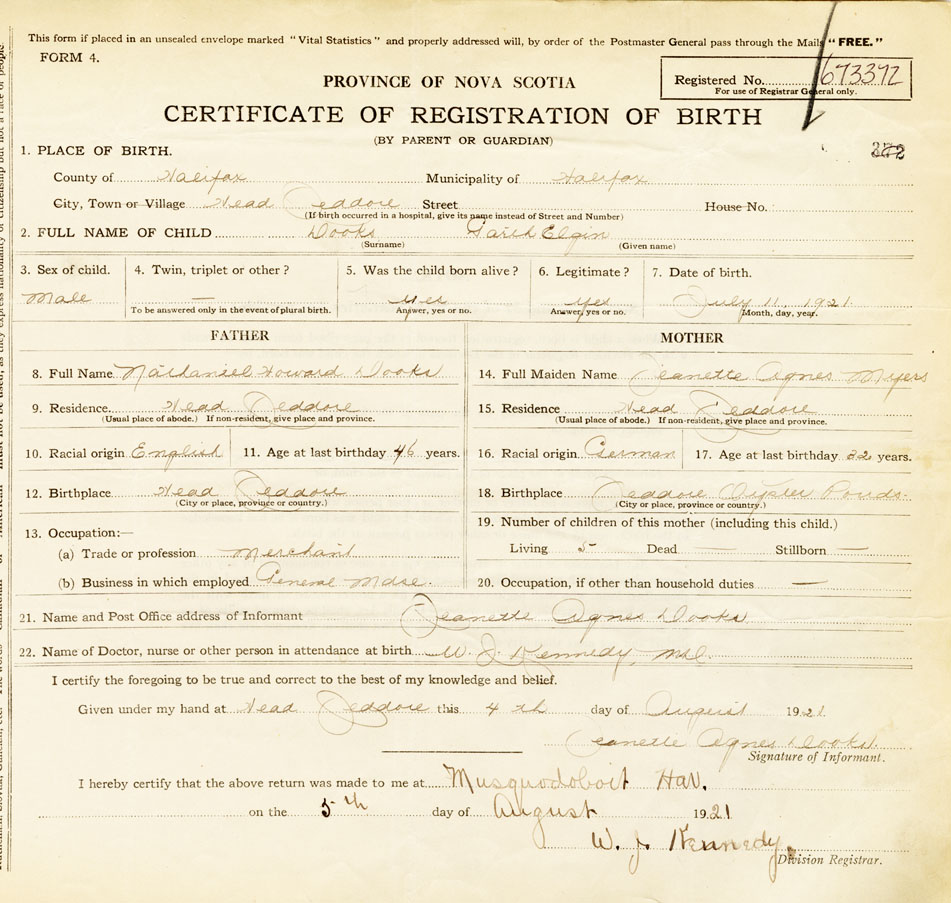 This form if placed in an unsealed envelope marked "Vital Statistics" and properly addressed will, by order of the Postmaster General pass through the Mails "FREE."
FORM 4.
Registered No. 673372
For use of Registrar General only.
PROVINCE OF NOVA SCOTIA
CERTIFICATE OF REGISTRATION OF BIRTH
(BY PARENT OR GUARDIAN)
1. PLACE OF BIRTH.
County of Halifax Municipality of Halifax
City, Town or Village Head Jeddore Street House No.
(If birth occurred in a hospital, give its name instead of Street and Number)
2. FULL NAME OF CHILD Dooks Elgin
(Surname) (Given name)
3. Sex of child. 4. Twin, triplet or other? 5. Was the child born alive? 6. Legitimate? 7. Date of birth.
Male — yes yes July 11, 1921
To be answered only in the event of plural birth. Answer, yes or no. Answer, yes or no. Month, day, year.
FATHER MOTHER
8. Full Name Nathaniel Howard Dooks 14. Full Maiden Name Jeanette Agnes Myers
9. Residence Head Jeddore 15. Residence Head Jeddore
(Usual place of abode.) If non-resident, give place and province. (Usual place of abode.) If non-resident, give place and province.
10. Racial origin English 11. Age at last birthday 46 years. 16. Racial origin German 17. Age at last birthday 32 years.
12. Birthplace Head Jeddore 18. Birthplace Jeddore Oyster Ponds.
(City or place, province or country.) (City or place, province or country.)
13. Occupation:— 19. Number of children of this mother (including this child.)
(a) Trade or profession Merchant Living 5 Dead — Stillborn —
(b) Business in which employed General Mdse. 20. Occupation, if other than household duties —
21. Name and Post Office address of Informant Jeanette Agnes Dooks
22. Name of Doctor, nurse or other person in attendance at birth W. J. Kennedy, M.D.
I certify the foregoing to be true and correct to the best of my knowledge and belief.
Given under my hand at Head Jeddore this 4th day of August 1921
Jeanette Agnes Dooks.
Signature of Informant.
I hereby certify that the above return was made to me at Musquodoboit Har.
on the 5th day of August 1921
W. J. Kennedy.
Division Registrar.